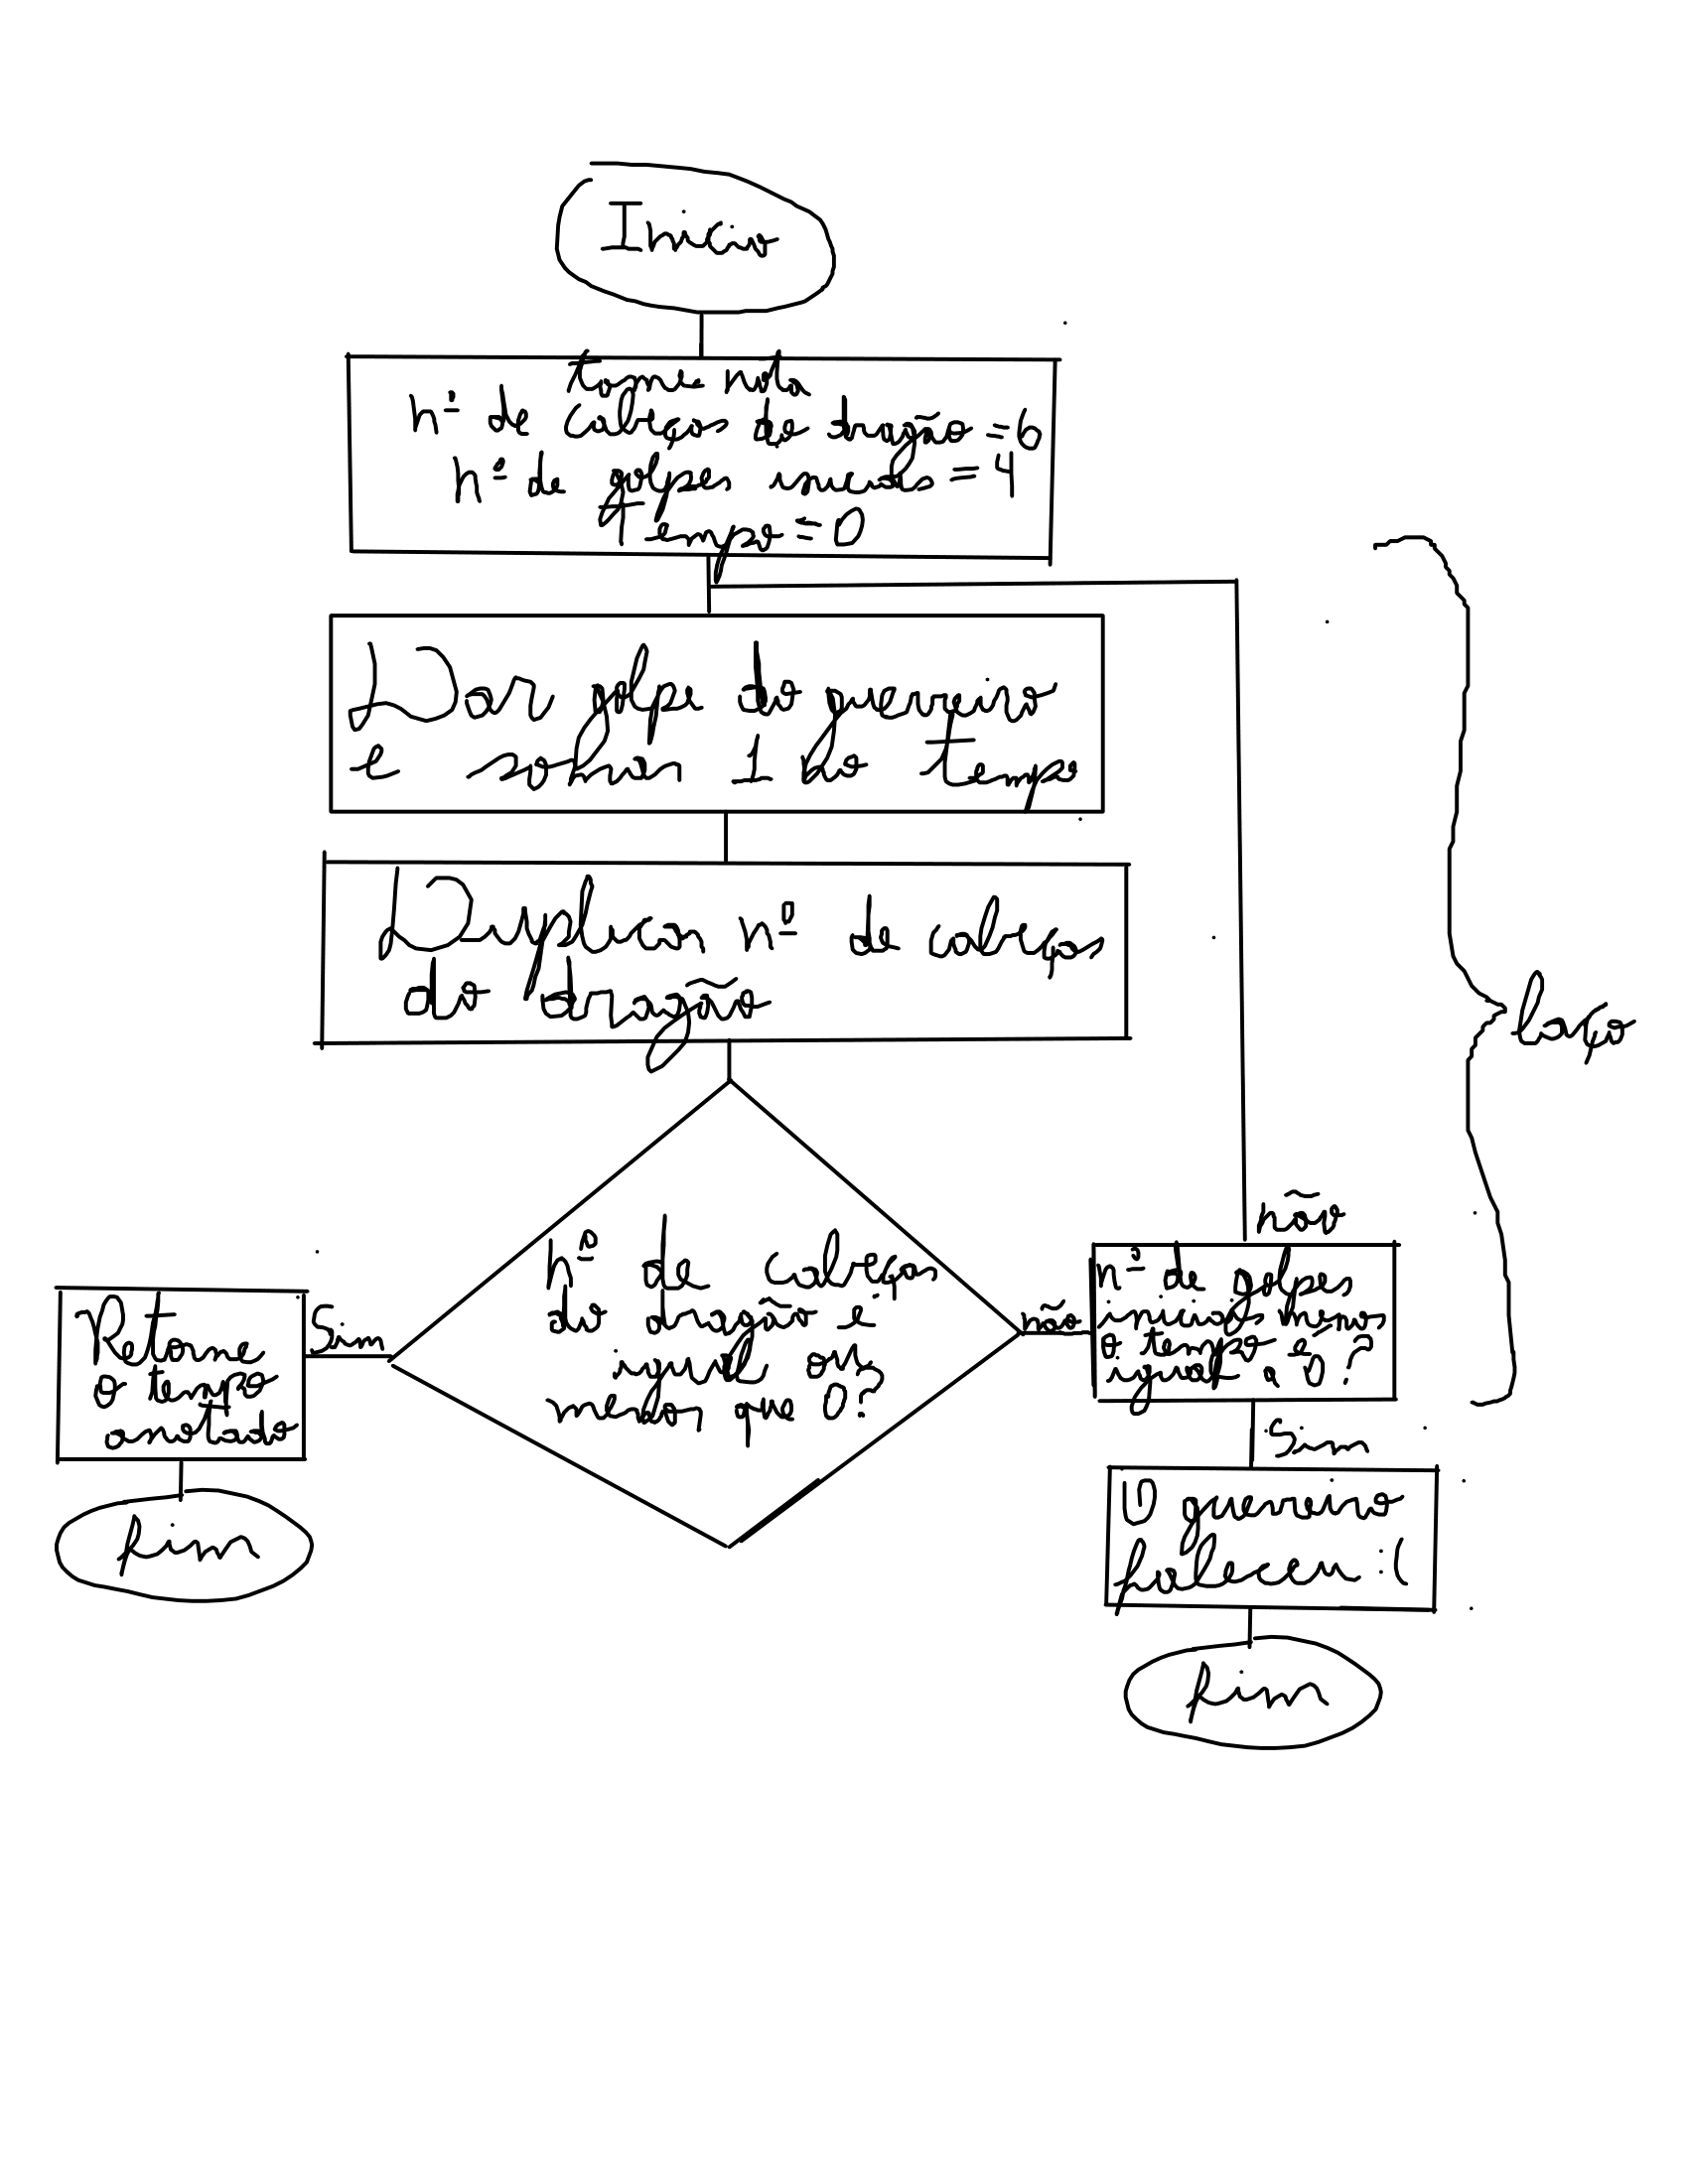 Inicio
tome nota
nº de cabeças do dragão = 6
nº de golpes iniciais = 4
Tempo = 0
Dar golpe do guerreiro
e somar 1 ao tempo
Duplicar nº de cabeças
do dragão
laço
nº de cabeças
do dragão é
igual ou
menor que 0?
Sim
Retorne
o tempo
anotado
Fim
não
não
nº de golpes
iniciais menos
o tempo é
igual a 0?
Sim
O guerreiro
faleceu :(
Fim